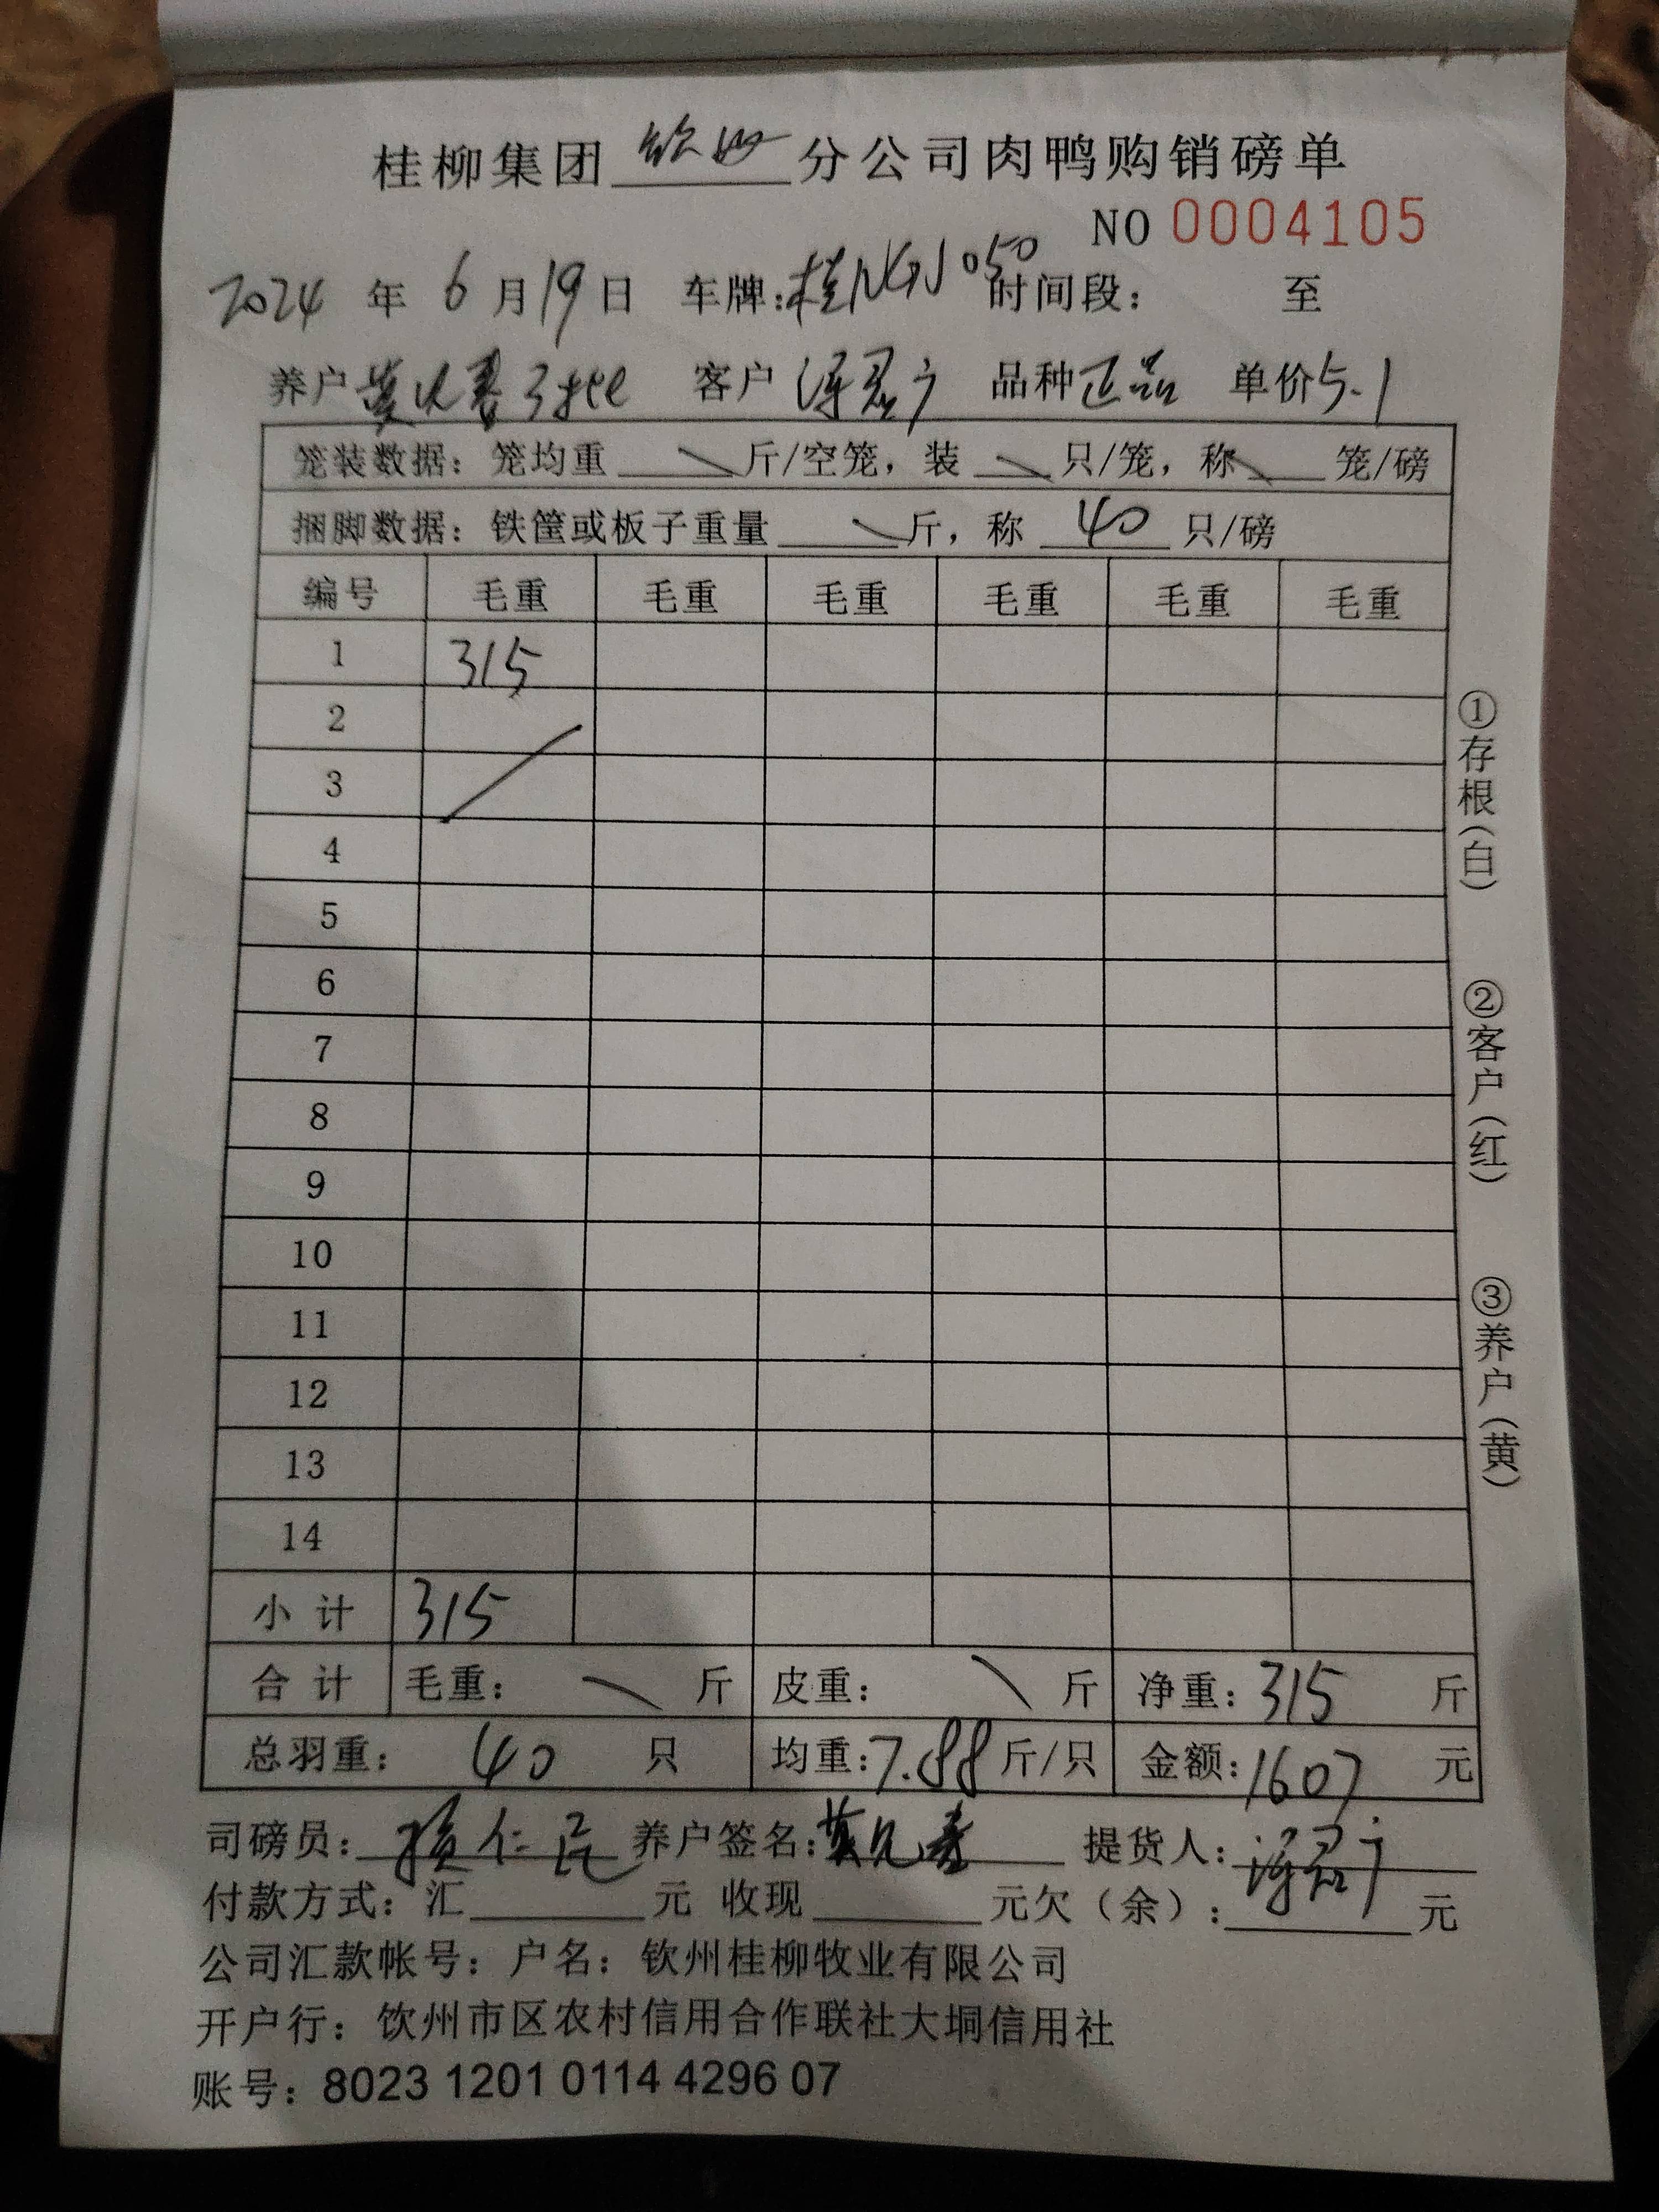 桂柳集团 钦州 分公司肉鸭购销磅单
NO 0004105
2024 年 6 月 19 日 车牌:桂NGJ050 时间段： 至
养户 客户 品种 正品 单价 5.1
笼装数据：笼均重 斤/空笼，装 只/笼，称 笼/磅
捆脚数据：铁筐或板子重量 斤，称 40 只/磅
编号 毛重 毛重 毛重 毛重 毛重 毛重
1 315
2
3
4
5
6
7
8
9
10
11
12
13
14
小计 315
合计 毛重： 斤 皮重： 斤 净重：315 斤
总羽重： 40 只 均重:7.88 斤/只 金额:1607 元
司磅员: 养户签名: 提货人:
付款方式：汇 元 收现 元欠（余）: 元
公司汇款帐号：户名：钦州桂柳牧业有限公司
开户行：钦州市区农村信用合作联社大垌信用社
账号：8023 1201 0114 4296 07
①存根(白)
②客户(红)
③养户(黄)